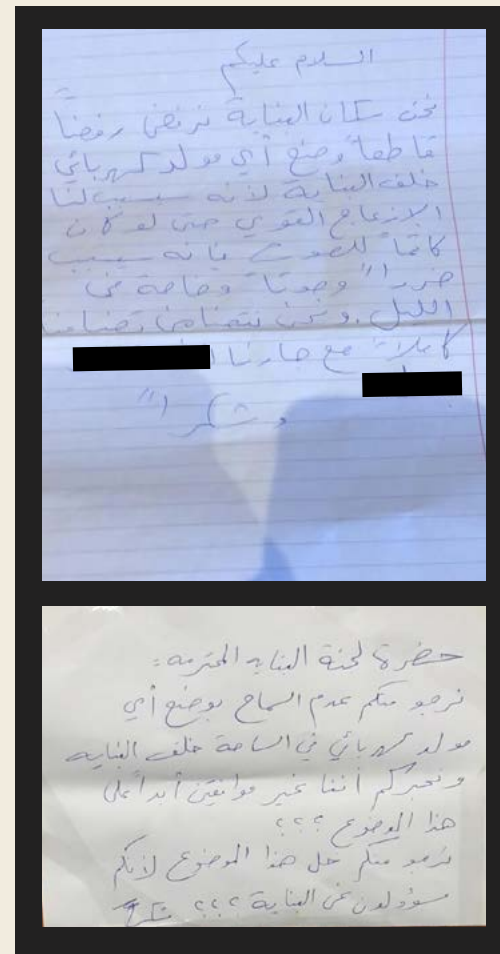 السلام عليكم
نحن سكان البناية نرفض رفضاً
قاطعاً وضع أي مولد كهربائي
خلف البناية لأنه سيسبب لنا
الازعاج القوي حتى لو كان
كاتماً للصوت فإنه سيسبب
ضرراً وصوتاً وخاصة في
الليل. ونحن نتضامن تضامنا
كاملاً مع جارنا
وشكراً
حضرة لجنة البنايه المحترمه:
نرجو منكم عدم السماح بوضع أي
مولد كهربائي في الساحة خلف البنايه
ونخبركم أننا غير موافقين أبداً على
هذا الموضوع ؟؟؟
نرجو منكم حل هذا الموضوع لأنكم
مسؤولون عن البناية ؟؟؟ شكراً